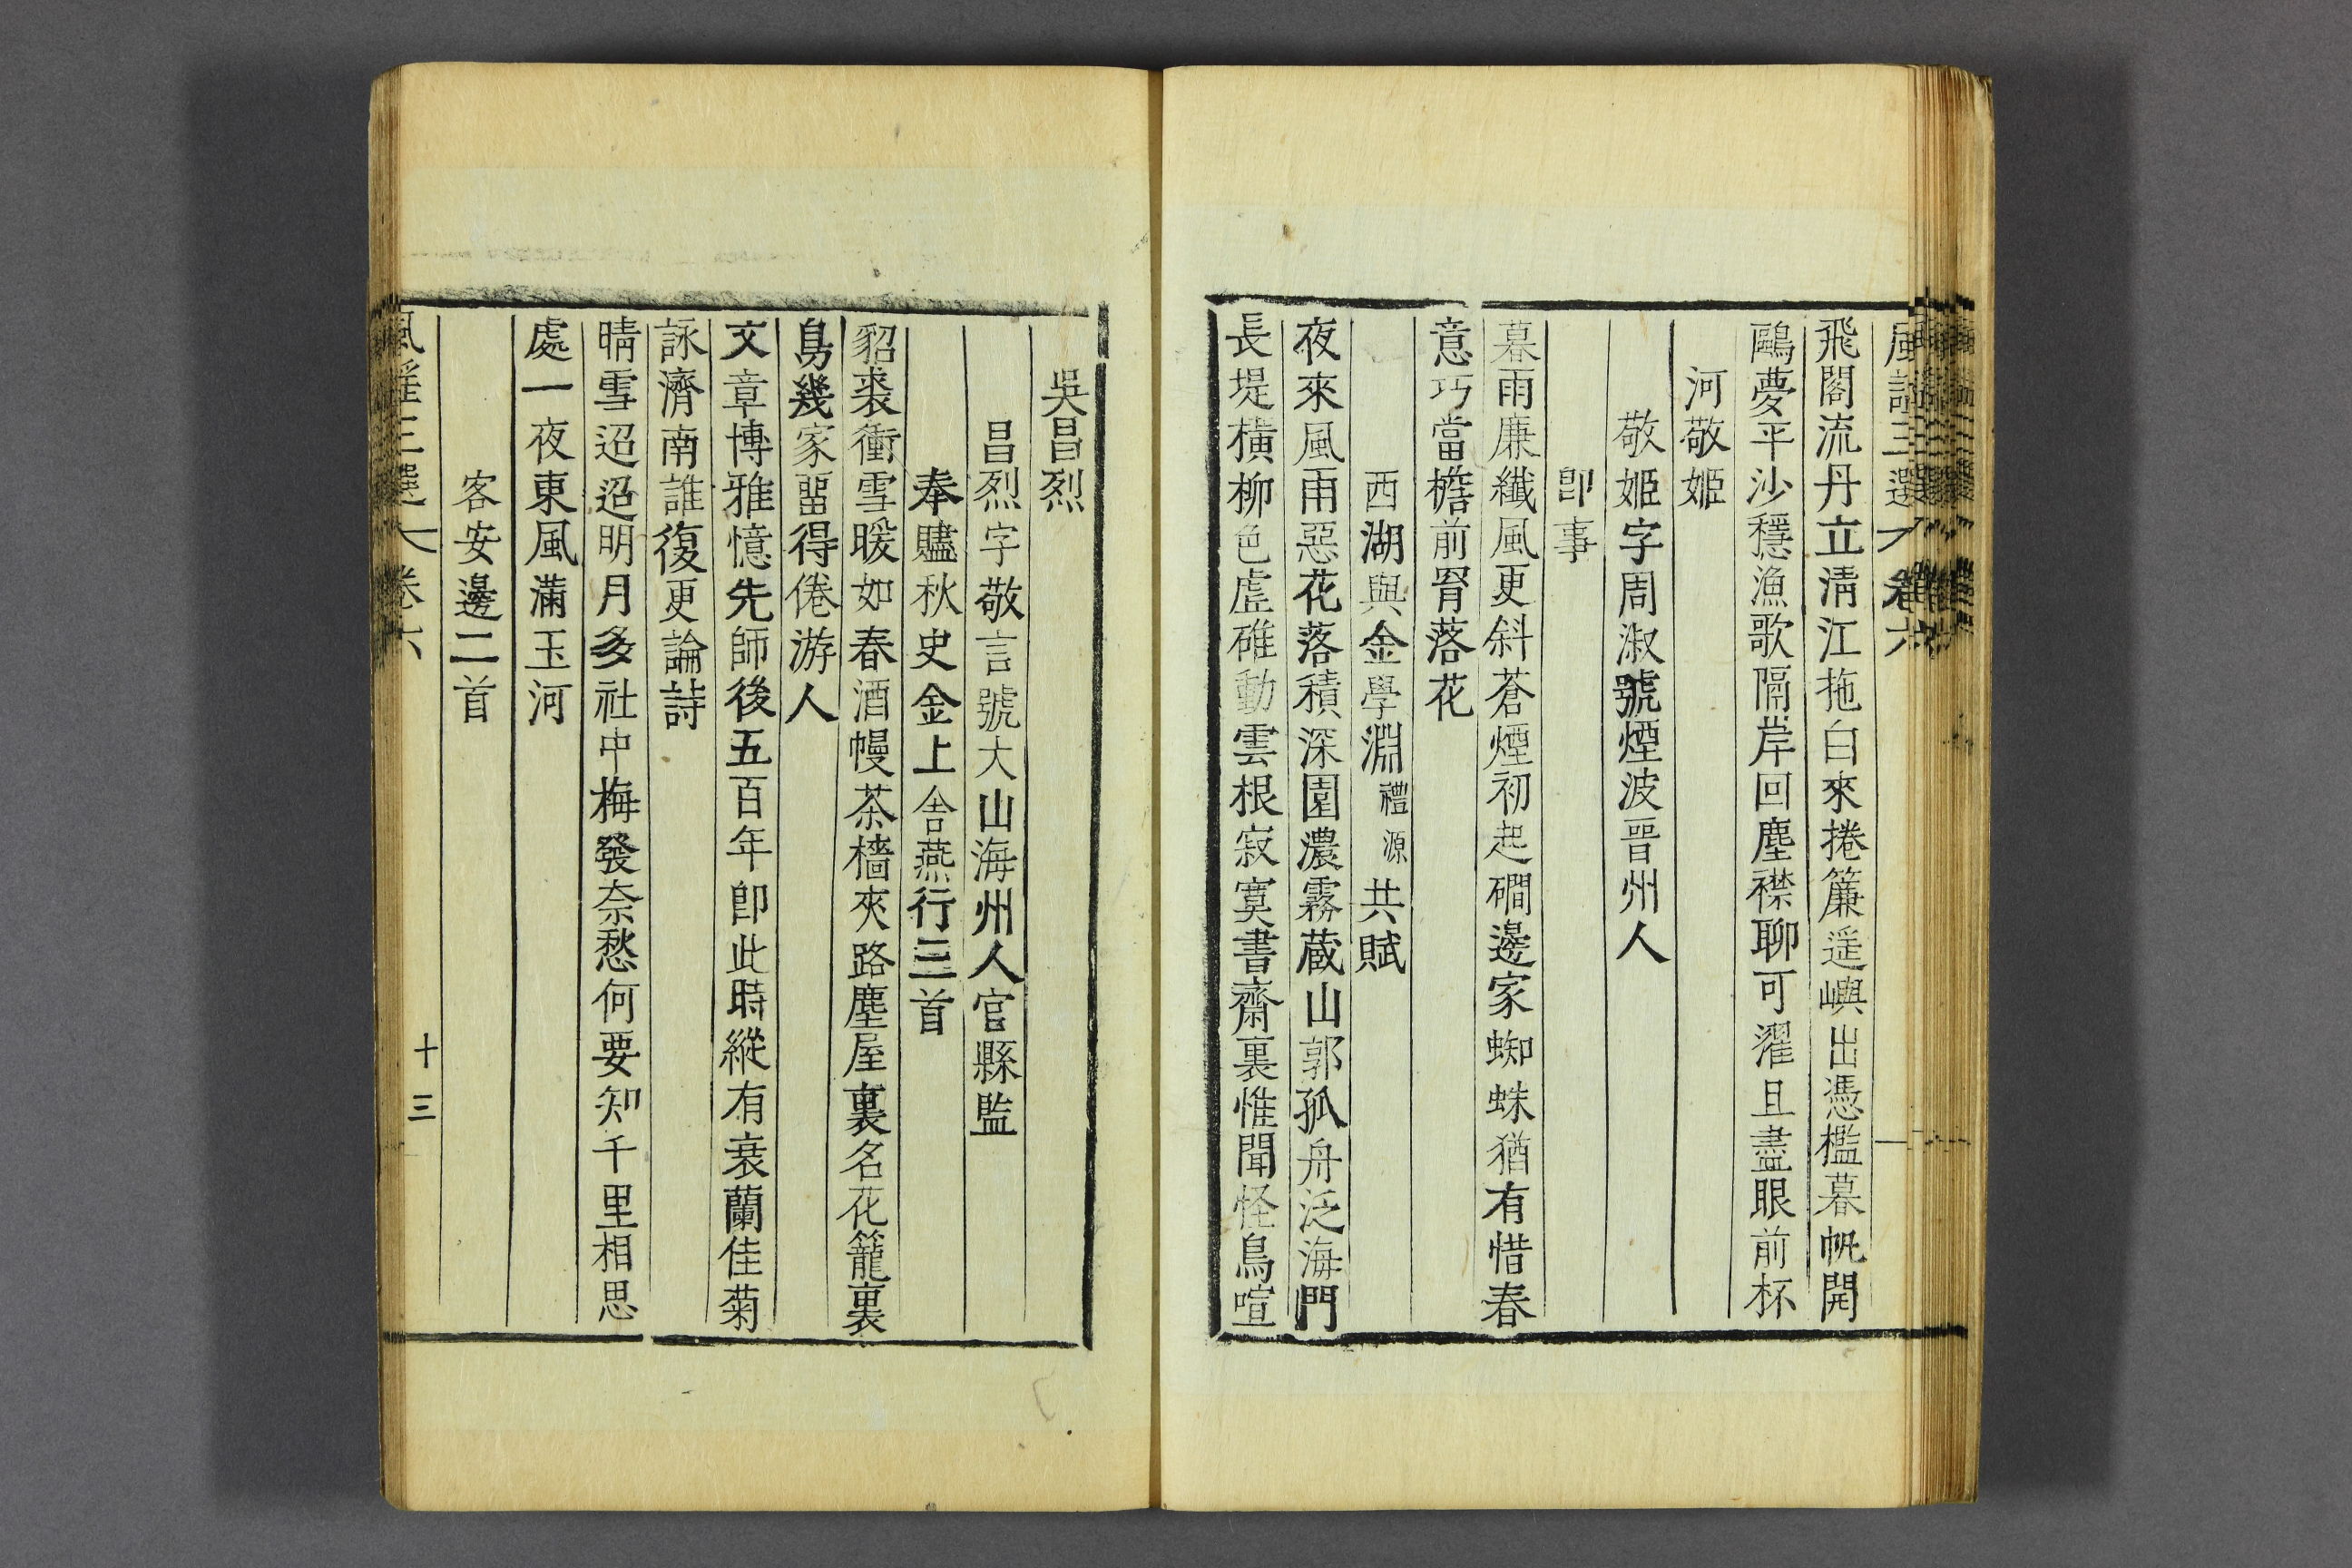 風謠三選 卷六
飛閣流丹立清江拖白來捲簾遥嶼出憑檻暮帆開
鷗夢平沙穩漁歌隔岸回塵襟聊可濯且盡眼前杯
河敬姬
敬姬字周淑號煙波晋州人
卽事
暮雨廉纖風更斜蒼煙初起磵邊家蜘蛛猶有惜春
意巧當檐前罥落花
西湖與金學淵禮源共賦
夜來風雨惡花落積深園濃霧蔵山郭孤舟泛海門
長堤橫柳色虛碓動雲根寂寞書齋裏惟聞怪鳥喧
吳昌烈
昌烈字敬言號大山海州人官縣監
奉贐秋史金上舍燕行三首
貂裘衝雪暖如春酒幔茶檣夾路塵屋裏名花籠裏
鳥幾家畱得倦游人
文章博雅憶先師後五百年卽此時縱有衰蘭佳菊
詠濟南誰復更論詩
晴雪迢迢明月多社中梅發奈愁何要知千里相思
處一夜東風滿玉河
客安邊二首
風謠三選 卷六 十三